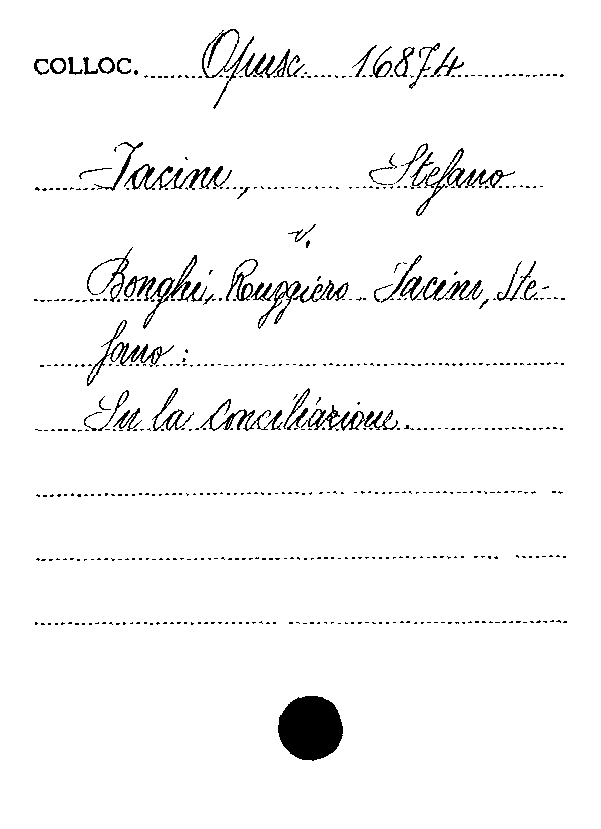 COLLOC. Opusc. 16874
Jacini, Stefano
v.
Bonghi, Ruggiero Jacini, Ste-
fano:
Su la conciliazione.